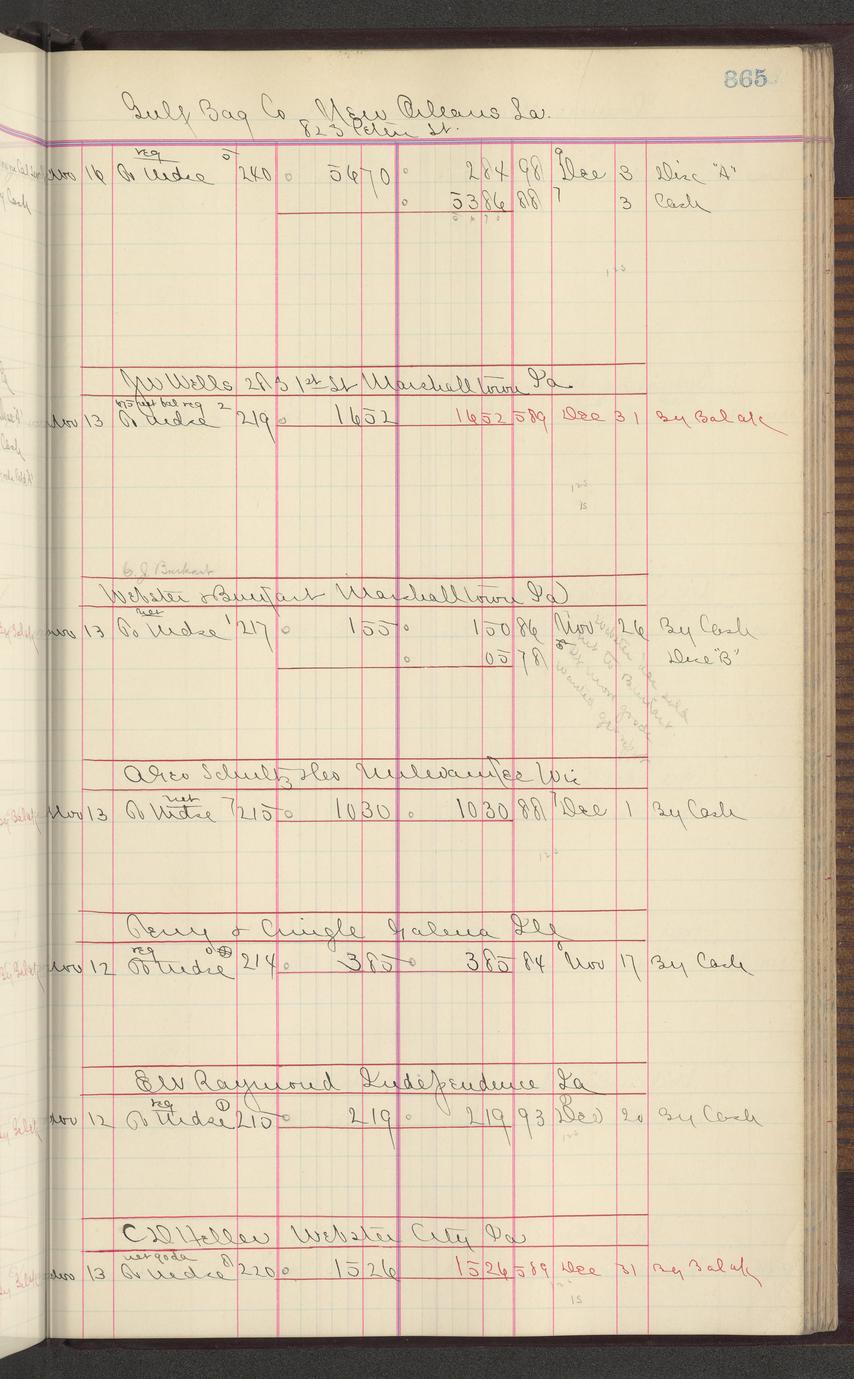 865
Gulf Bag Co New Orleans La.
823 Peter St.
reg
Nov 16 To Mdse 240 5670 284 98 Dec 3 Disc "A"
5386 88 3 Cash
JW Wells 283 1st St Marshalltown Ia
net bal reg 2
Nov 13 To Mdse 219 1652 1652 589 Dec 31 By Bal
Webster & Burkart Marshalltown Ia
net
Nov 13 To Mdse 217 155 150 86 Nov 26 By Cash
05 78 Disc "B"
Schultz Milwaukee Wis
net
Nov 13 To Mdse 7 215 1030 1030 88 Dec 1 By Cash
Perry & Cringle Galena Ill
reg
Nov 12 To Mdse 214 385 385 84 Nov 17 By Cash
EW Raymond Independence Ia
reg
Nov 12 To Mdse 1 215 219 219 93 Dec 20 By Cash
CD Heller Webster City Ia
net 90 da
Nov 13 To Mdse 8 220 1526 1526 589 Dec 31 By Bal
15